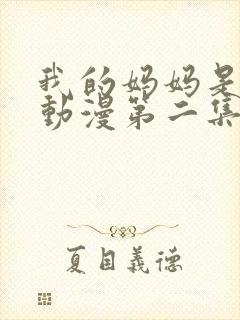 我的妈妈是
動漫第二集
夏目義德